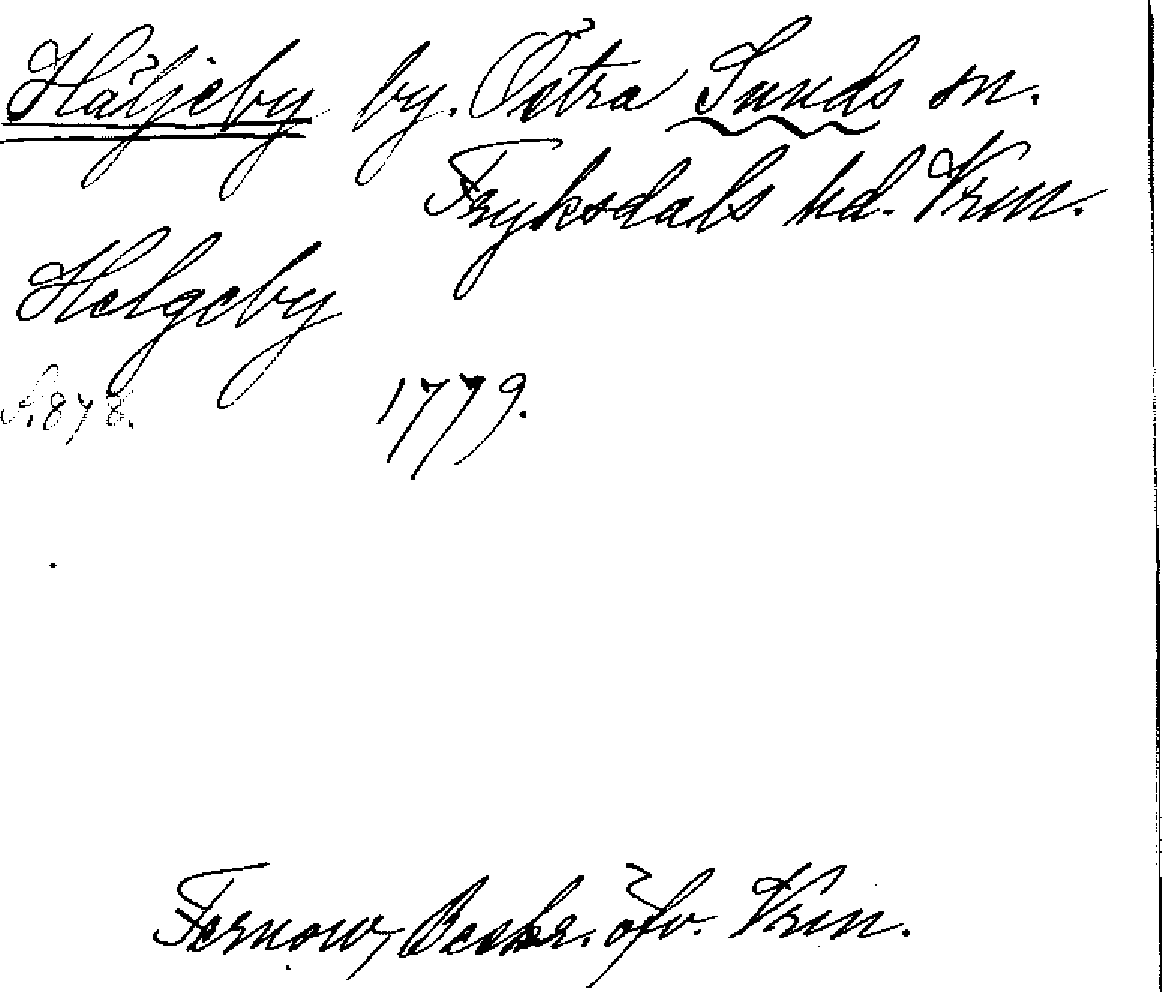 Häljeby by. Östra Sunds sn.
Fryksdals hd. Vrm.
Helgeby
S. 878. 1779.
Fernow, Beskr. öfv. Vrm.